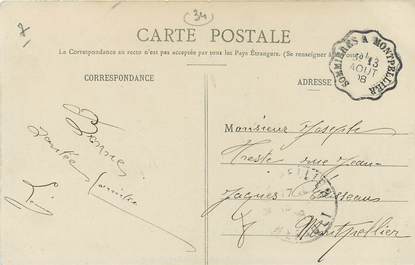 34
CARTE POSTALE
La Correspondance au recto n'est pas acceptée par tous les Pays Étrangers. (Se renseigner à
CORRESPONDANCE
ADRESSE
SOMMIÈRES A MONTPELLIER
13
AOUT
08
Bonne
Santée
Monsieur Joseph
rue Jean
Jaques Rousseau
Montpellier